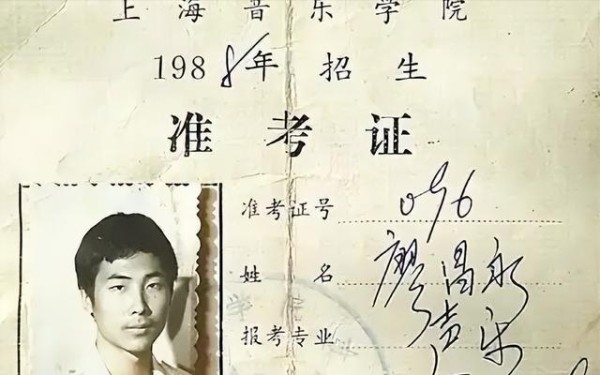 上海音乐学院
1988年招生
准考证
准考证号 096
姓名 廖昌永
报考专业 声乐
学